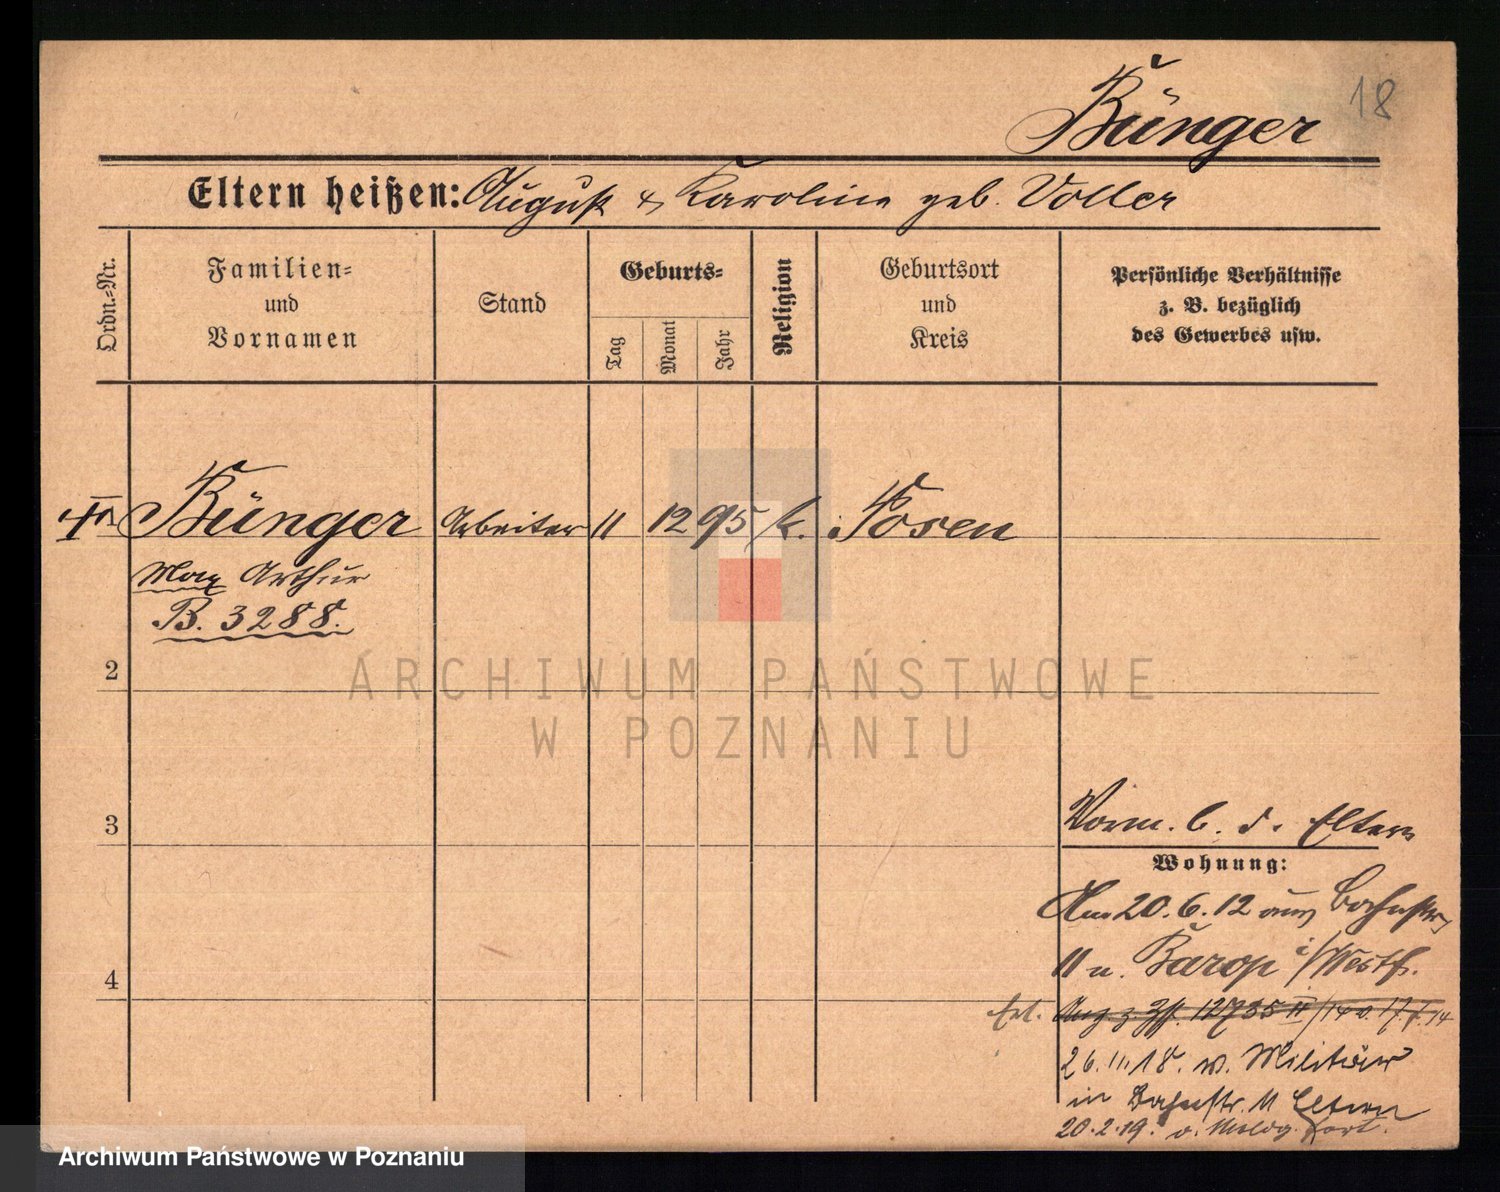 18
Bünger
Eltern heißen: August & Karoline geb. Voller
Ordn.=Nr.
Familien=
und
Vornamen
Stand
Geburts=
Tag
Monat
Jahr
Religion
Geburtsort
und
Kreis
Persönliche Verhältnisse
z. B. bezüglich
des Gewerbes usw.
Bünger Arbeiter 11 12 95 k. Posen
Max Arthur
B. 3288.
2
3
4
Vorm. b. d. Eltern
Wohnung:
Am 20.6.12 aus
11 n. Barop i/Westf.
26.11.18. v. Militär
in 11 Eltern
20.2.19. o. Meldg. fort.
ARCHIWUM PAŃSTWOWE
W POZNANIU
Archiwum Państwowe w Poznaniu